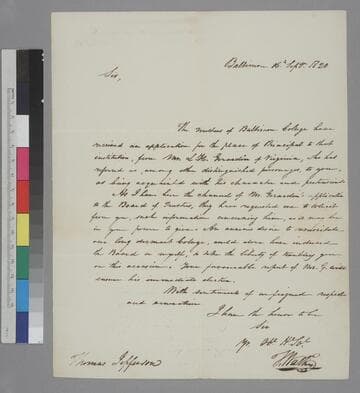 Baltimore 16th Sept. 1820
Sir,
The Trustees of Baltimore College have
received an application for the place of Principal to that
institution, from Mr. L. H. Girardin of Virginia, who has
referred us, among other distinguished personages, to you,
as being acquainted with his character and
As I have been the channel of Mr. Girardin's application
to the Board of Trustees, they have requested me to solicit
from you such information concerning him, as it may be
in your power to give. An anxious desire to resuscitate
our long dormant College, could alone have induced
the Board or myself, to take the liberty of troubling you
on this occasion. Your favourable report of Mr. G. will
ensure his immediate election.
With sentiments of unfeigned respect
and veneration
I have the honor to be
Sir
Yr. Obt. H. St.
Thomas Jefferson